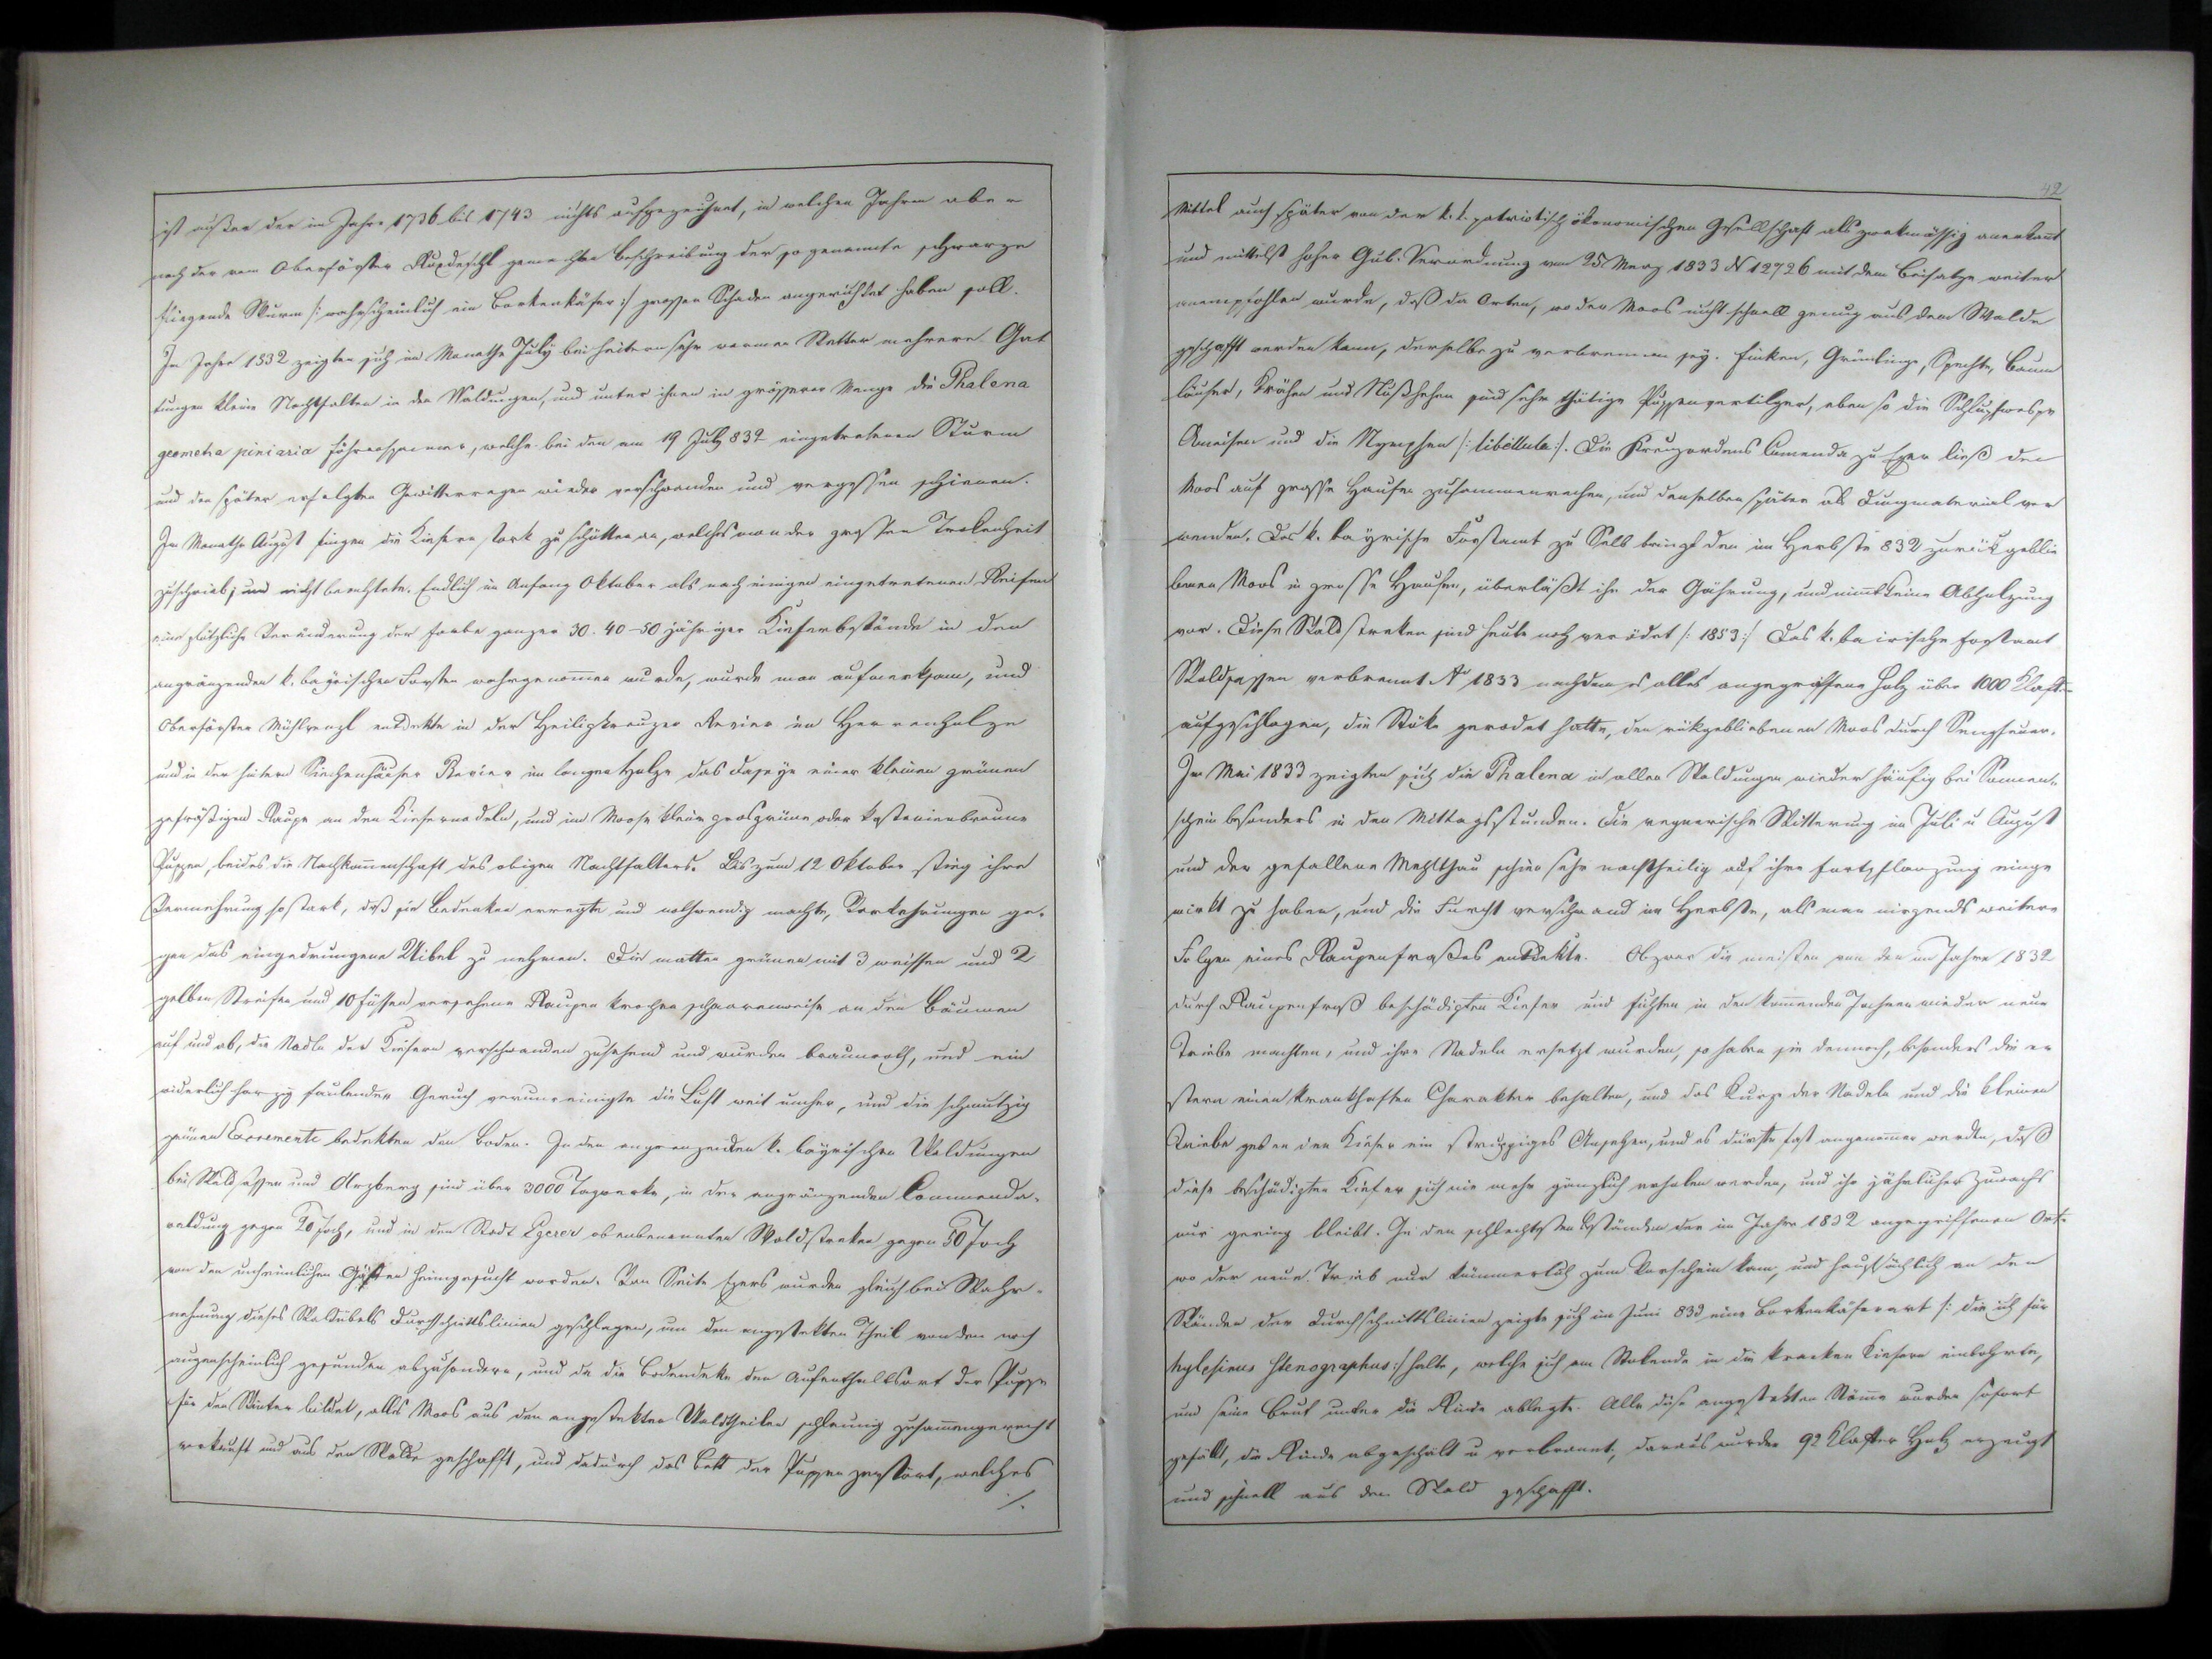 ist außer der im Jahre 1736 bis 1743 nichts aufgezeichnet, in welchen Jahren aber
nach der vom Oberförster gemachten Beschreibung der sogenannte schwarze
fliegende Wurm /: wahrscheinlich ein Borkenkäfer :/ grossen Schaden angerichtet haben soll.
Im Jahre 1832 zeigten sich im Monathe July bei heitern sehr warmen Wetter mehrere Gat
tungen kleine Nachtfalter in den Waldungen, und unter ihnen in grösserer Menge die Phalena
geometra piniaria Föhrenspanner, welche bei den am 19 July 832 eingetretenen Sturm
und den später erfolgten Gewitterregen wieder verschwanden und vergessen schienen.
Im Monathe August fingen die Kiefern stark zu schütten an, welches man der grossen Trokenheit
zuschrieb, und nicht beachtete. Endlich im Anfang Oktober als nach einigen eingetretenen Reifen
eine plötzliche Veränderung der Farbe ganzer 30. 40-50 jähriger Kieferbestände in den
angränzenden k. bayrischen Forsten wahrgenommen wurde, wurde man aufmerksam, und
Oberförster Mühlvenzl entdekte in der Heiligkreuzer Revier im Herrenholze
und in der hintern Siechenhäuser Revier im langen Holze das Daseyn einer kleinen grünen
gefräßigen Raupe an den Kiefernadeln, und im Moose kleine grasgrüne oder kastanienbraune
Puppen, beides die Nachkommenschaft des obigen Nachtfalters. Bis zum 12 Oktober stieg ihre
Vermehrung so stark, daß sie Bedenken erregte und nothwendig machte, Vorkehrungen ge-
gen das eingedrungene Uibel zu nehmen. Die matten grünen mit 3 weissen und 2
gelben Streifen und 10 Füssen versehene Raupen krochen schaarenweise an den Bäumen
auf und ab, die Nadln der Kiefern verschwanden zusehend und wurden braunroth, und ein
widerlich harzig faulender Geruch verunreinigte die Luft weit umher, und die schmutzig
grünen Excremente bedekten den Boden. In den angränzenden k. bayrischen Waldungen
bei Waldsassen und Arzberg sind über 3000 Tagwerke, in der angränzenden Commenda-
waldung gegen 20 Joch, und in den Stadt Egerer obenbenannten Waldstreken gegen 50 Joch
von den unheimlichen Gästen heimgesucht worden. Von Seite Egers wurden gleich bei Wahr-
nehmung dieses Waldübels Durchschnittslinien geschlagen, um den angestekten Theil von den noch
augenscheinlich gesunden abzusondern, und da die Bodendeke den Aufenthaltsort der Puppe
für den Winter bildet, alles Moos aus den angestekten Waldtheilen schleunig zusammengerecht
verkauft und aus dem Walde geschafft, und dadurch das Bett der Puppen zerstört, welches
/.
42
Mittel auch später von der k. k. patriotisch ökonomischen Gesellschaft als zwekmässig anerkannt
und mittelst hoher Gub. Verordnung vom 25 Merz 1833 N 12726 mit dem Beisatze weiter
anempfohlen wurde, daß da Orten, wo der Moos nicht schnell genug aus dem Walde
geschafft werden kann, derselbe zu verbrennen sey. Finken, Grünlinge, Spechte, Baum
läufer, Krähen und Nußhehen sind sehr thätige Puppenvertilger, eben so die Schlupfwespe
Ameisen und die Nymphen /: libellula :/. Die Kreuzordens Comenda zu Eger ließ den
Moos auf grosse Haufen zusammenrechen, und denselben später als Dungmaterial ver
wenden. Das k. bayrische Forstamt zu Selb bringt den im Herbste 832 zurük geblie
benen Moos in grosse Haufen, überläßt ihn der Gährung, und nimmt keine Abholzung
vor. Diese Waldstreken sind heute noch verödet /: 1853 :/ Das k. bairische Forstamt
Waldsassen verbrennt Ao 1833 nachdem es alles angegriffene Holz über 1000 Klafter
aufgeschlagen, die Stöke gerodet hatte, den rükgebliebenen Moos durch Sengfeuer.
Im Mai 1833 zeigten sich die Phalena in allen Waldungen wieder häufig bei Sonnen-
schein besonders in den Mittagsstunden. Die regnerische Witterung im Juli u August
und der gefallene Mehlthau schien sehr nachtheilig auf ihre Fortpflanzung einge
wirkt zu haben, und die Furcht verschwand im Herbste, als man nirgends weitere
Folgen eines Raupenfraßes entdekte. Obzwar die meisten von den im Jahre 1832
durch Raupenfraß beschädigten Kiefer und Fichten in den kommenden Jahren wieder neue
Triebe machten, und ihre Nadeln ersetzt wurden, so haben sie dennoch, besonders die er
stern einen krankhaften Charakter behalten, und das Kurze der Nadeln und die kleinen
Triebe geben den Kiefer ein struppiges Ansehen, und es dürfte fast angenommen werden, daß
diese beschädigten Kiefer sich nie mehr gänzlich erholen werden, und ihr jährlicher Zuwachs
nur gering bleibt. In den schlechtesten Beständen der im Jahre 1832 angegriffenen Orte
wo der neue Trieb nur kümmerlich zum Vorschein kam, und hauptsächlich an den
Wänden der Durchschnittslinien zeigte sich im Juni 833 eine Borkenkäferart /: die ich für
hylesinus Stenographus :/ halte, welche sich am Stokende in die kranken Kiefern einbohrte,
und seine Brut unter die Rinde ablegte. Alle diese angestekten Stämme wurden sofort
gefällt, die Rinde abgeschält u verbrannt, daraus wurden 92 Klafter Holz erzeugt
und schnell aus dem Wald geschafft.